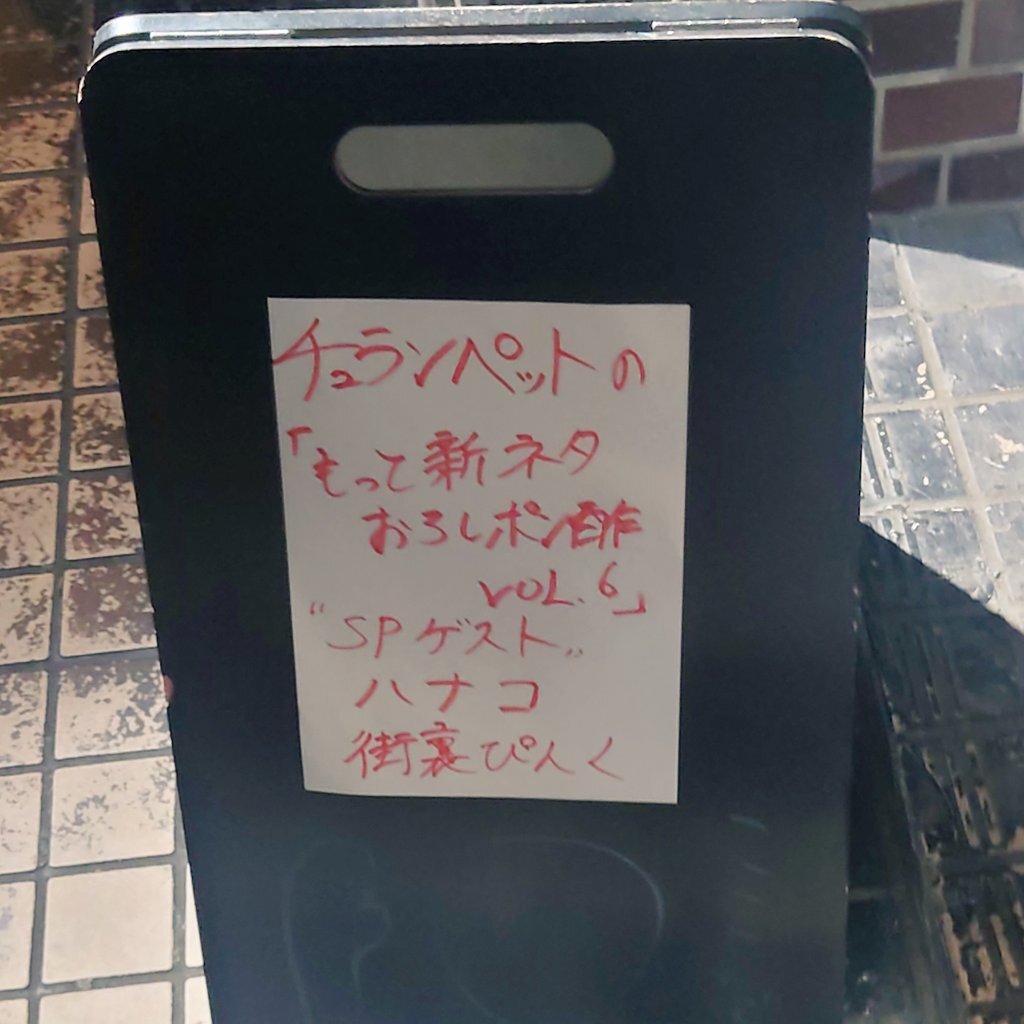 チュランペットの
「もって新ネタ
おろしポン酢
VOL.6」
"SPゲスト"
ハナコ
街裏ぴんく